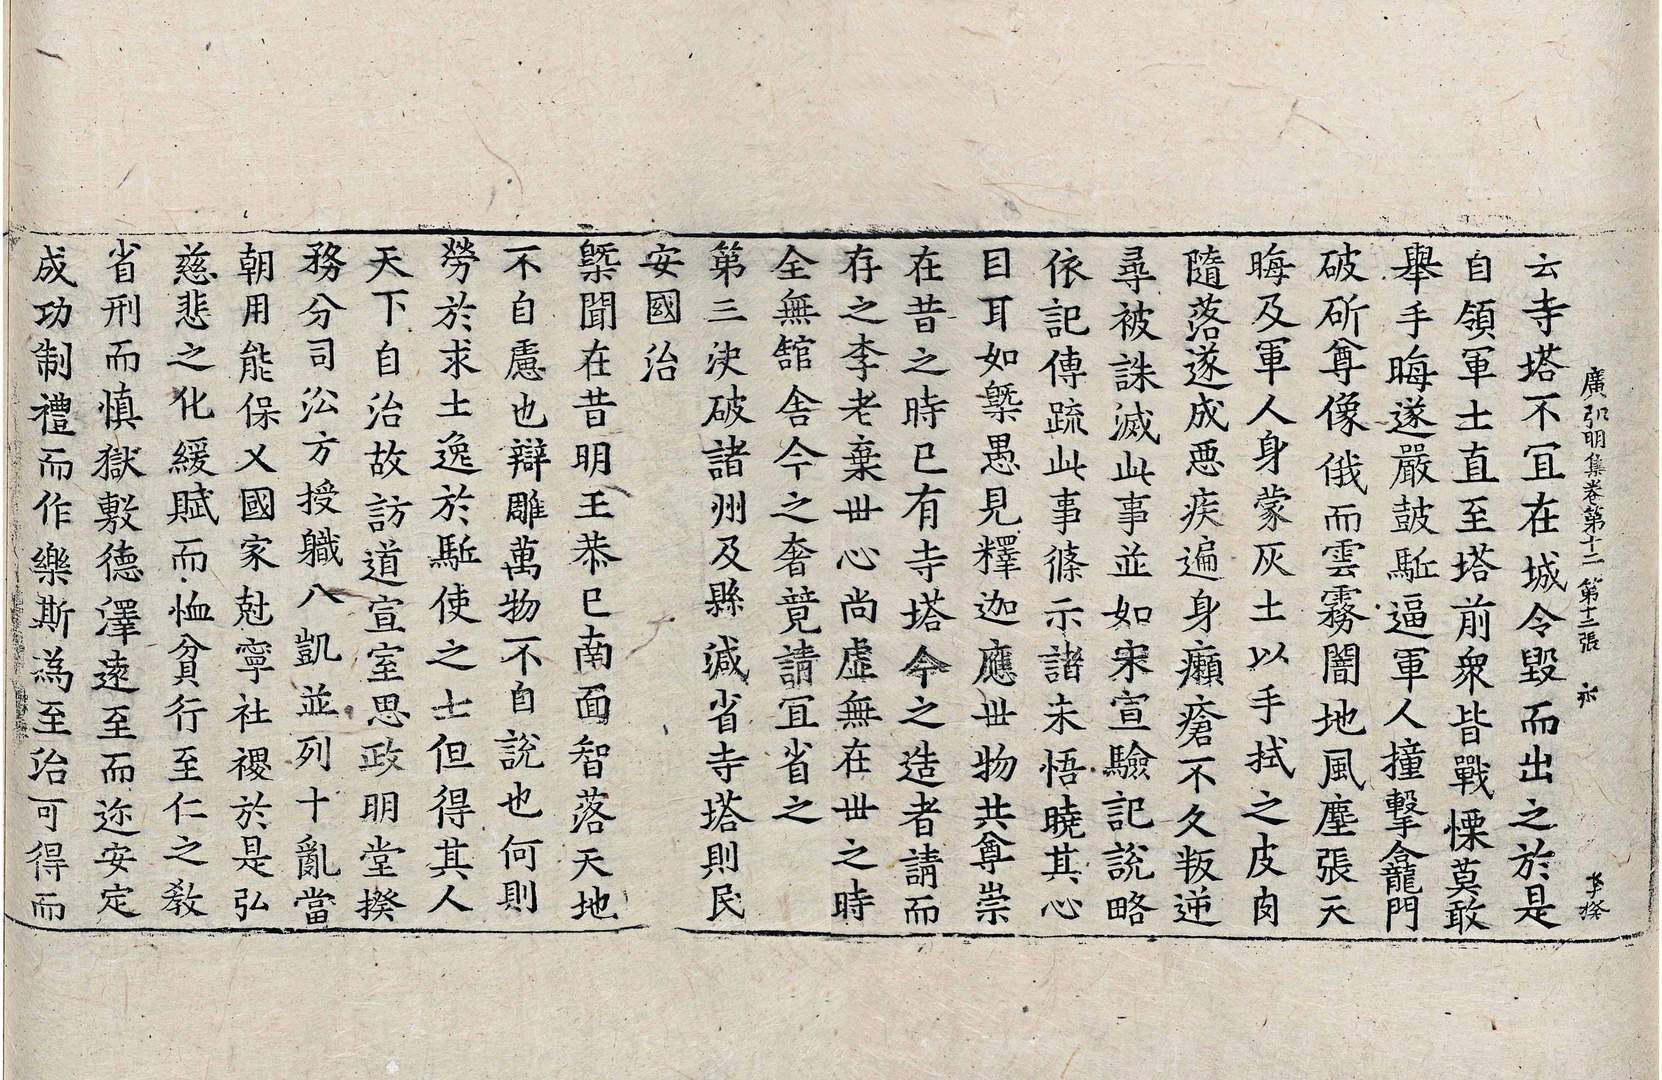 廣弘明集卷第十二 第十三張 㐮
李揆
云寺塔不冝在城令毀而出之於是
自領軍士直至塔前衆皆戰慄莫敢
舉手晦遂嚴鼓駈逼軍人撞擊龕門
破斫尊像俄而雲霧闇地風塵張天
晦及軍人身蒙灰土以手拭之皮肉
隨落遂成惡疾遍身癩瘡不久叛逆
尋被誅滅此事並如宋宣驗記說略
依記傳疏此事條示諸未悟曉其心
目耳如槩愚見釋迦應世物共尊崇
在昔之時已有寺塔今之造者請而
存之李老棄世心尚虛無在世之時
全無舘舍今之奢竟請冝省之
第三決破諸州及縣減省寺塔則民
安國治
槩聞在昔明王恭已南面智落天地
不自慮也辯雕萬物不自說也何則
勞於求士逸於駈使之士但得其人
天下自治故訪道宣室思政明堂揆
務分司訟方授職八凱並列十亂當
朝用能保乂國家尅寧社稷於是弘
慈悲之化緩賦而恤貧行至仁之教
省刑而慎獄敷德澤遠至而迩安定
成功制禮而作樂斯為至治可得而